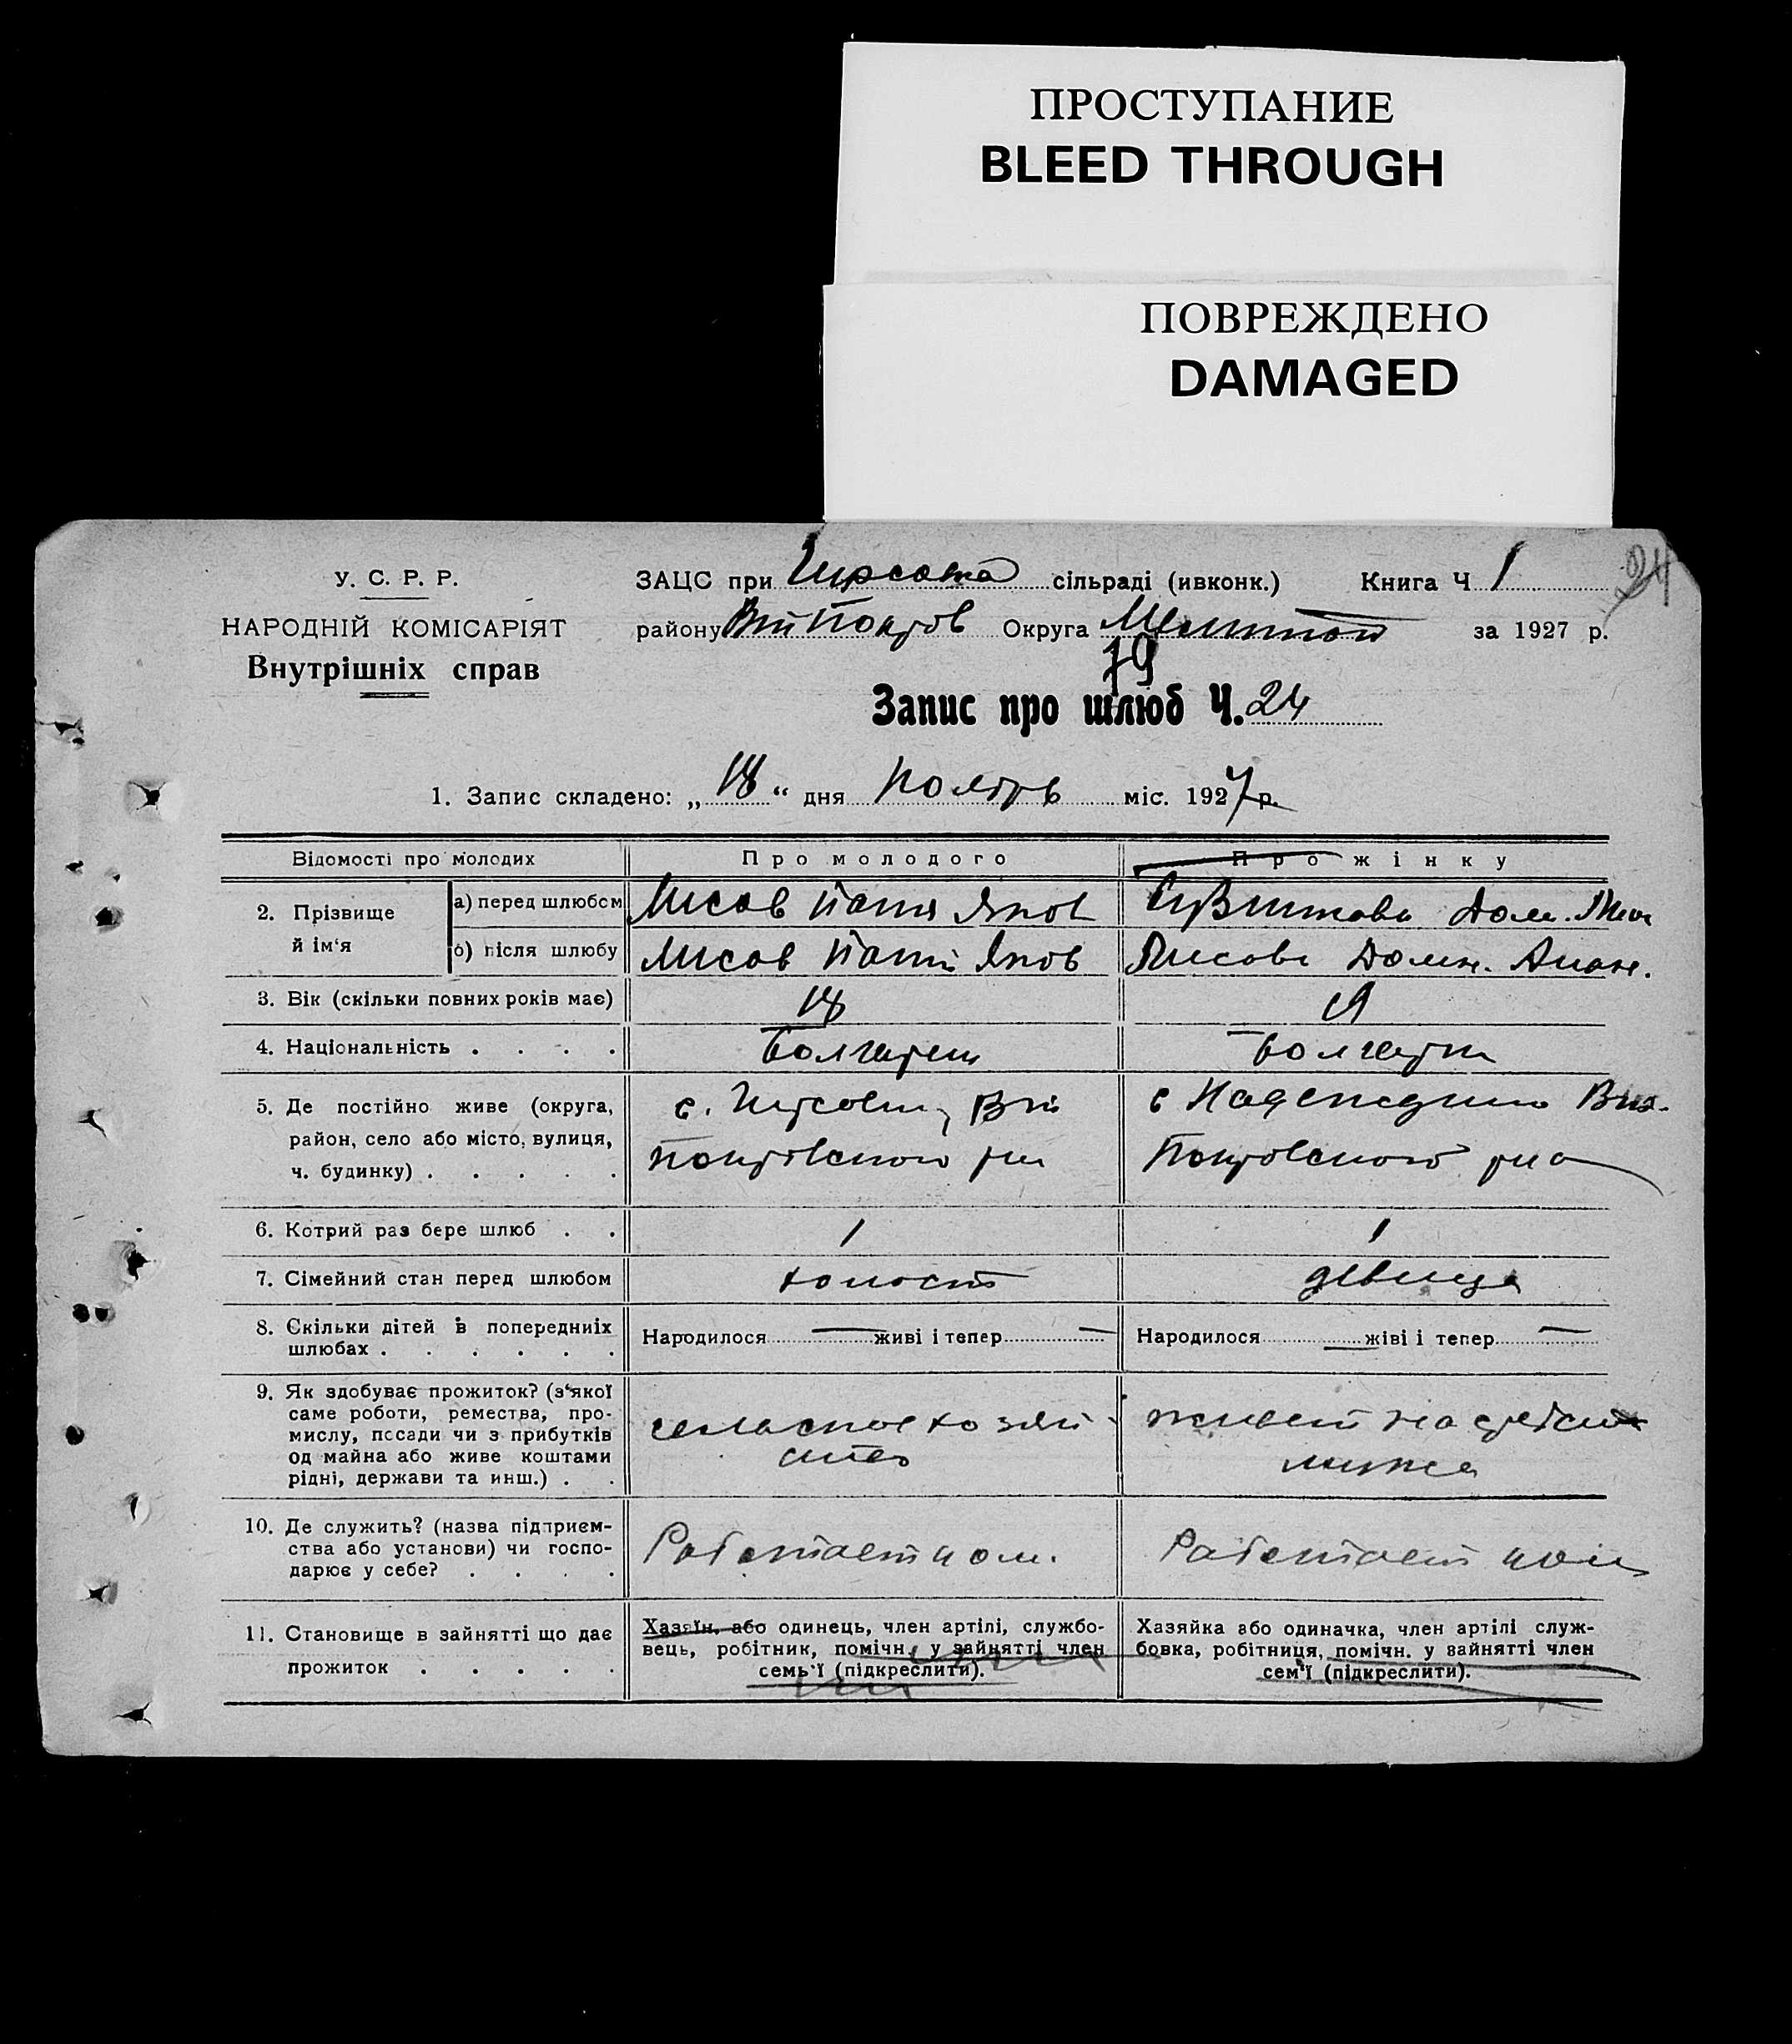 ПРОСТУПАНИЕ
BLEED THROUGH
ПОВРЕЖДЕНО
DAMAGED
У. С. Р. Р.
НАРОДНІЙ КОМІСАРІЯТ
Внутрішніх справ
ЗАЦС при сільраді (ивконк.) Книга Ч 1 24
району Округа за 1927 р.
79
Запис про шлюб Ч. 24
1. Запис складено: „ 18 “ дня ноябрь міс. 1927 р.
Відомості про молодих Про молодого Про жінку
2. Прізвище й ім‘я
а) перед шлюбом Яков Дом.
б) після шлюбу Яков Домн.
3. Вік (скільки повних років має) 18 19
4. Національність . . . . Болгарин Болгарка
5. Де постійно живе (округа, район, село або місто, вулиця, ч. будинку) . . . . .
с.
Покровского р-на
с
Покровского р-на
6. Котрий раз бере шлюб . . 1 1
7. Сімейний стан перед шлюбом холост девица
8. Скільки дітей в попередниіх шлюбах . . . . . .
Народилося — живі і тепер —
Народилося — жіві і тепер —
9. Як здобуває прожиток? (з‘якої саме роботи, ремества, промислу, посади чи з прибутків од майна або живе коштами рідні, держави та инш.) . .
сельское хозяй-
ство
живет на средства
мужа
10. Де служить? (назва підприєм-
ства або установи) чи госпо-
дарює у себе? . . . .
Работает
Работает
11. Становище в зайнятті що дає
прожиток . . . . .
Хазяїн, або одинець, член артілі, службо-
вець, робітник, помічн. у зайнятті член
семь‘ї (підкреслити).
Хазяйка або одиначка, член артілі служ-
бовка, робітниця, помічн. у зайнятті член
сем‘ї (підкреслити).